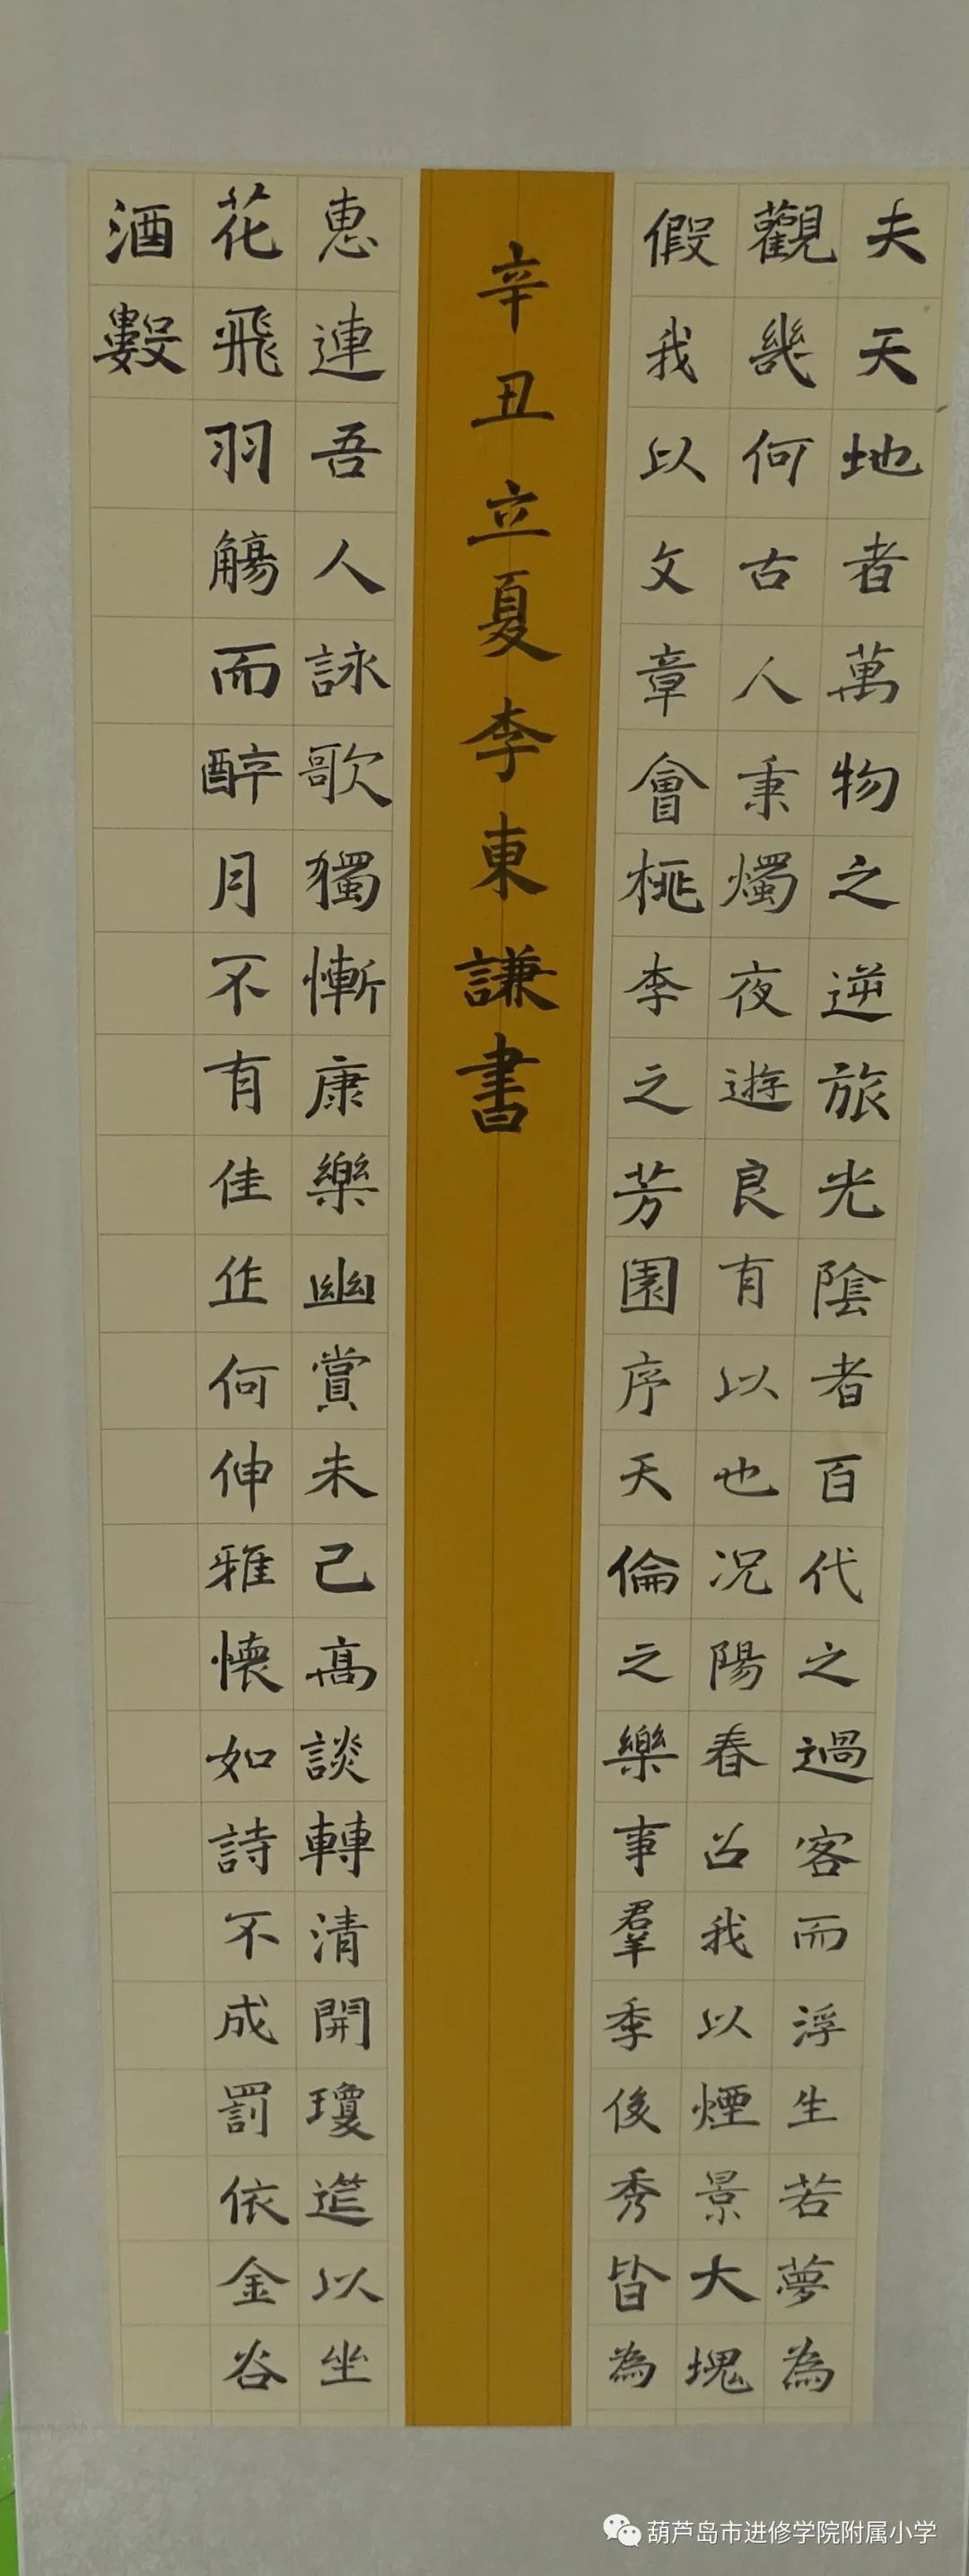 夫天地者萬物之逆旅光陰者百代之過客而浮生若夢為
觀幾何古人秉燭夜遊良有以也况陽春召我以煙景大塊
假我以文章會桃李之芳園序天倫之樂事羣季俊秀皆為
辛丑立夏李東謙書
惠連吾人詠歌獨慚康樂幽賞未己高談轉清開瓊筵以坐
花飛羽觴而醉月不有佳作何伸雅懷如詩不成罰依金谷
酒數
葫芦岛市进修学院附属小学